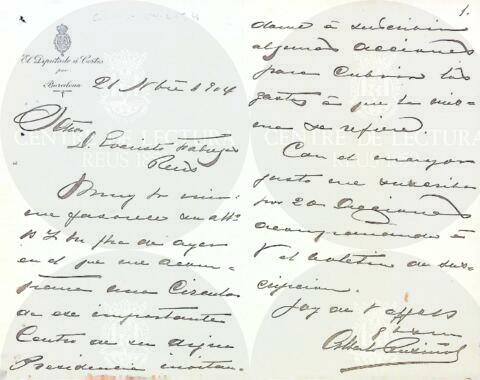 El Diputado á Cortes
por
Barcelona
21 Nbre 1904
Sr. D. Evaristo Fábregas
Reus
Muy Sr. mio:
me favorece su att.
de ayer
en el que me acom-
una Circular
de ese importante
Centro de su digna
Presidencia invitan-
1.
dome á suscribir
algunas acciones
para cubrir los
gastos á que la mis-
ma se refiere
Con el mayor
gusto me suscribo
por 20 acciones
acompañando á
V el boletin de sus-
cripcion.
Soy de V affss
CENTRE DE LECTURA
REUS
CENTRE DE LECTURA
REUS